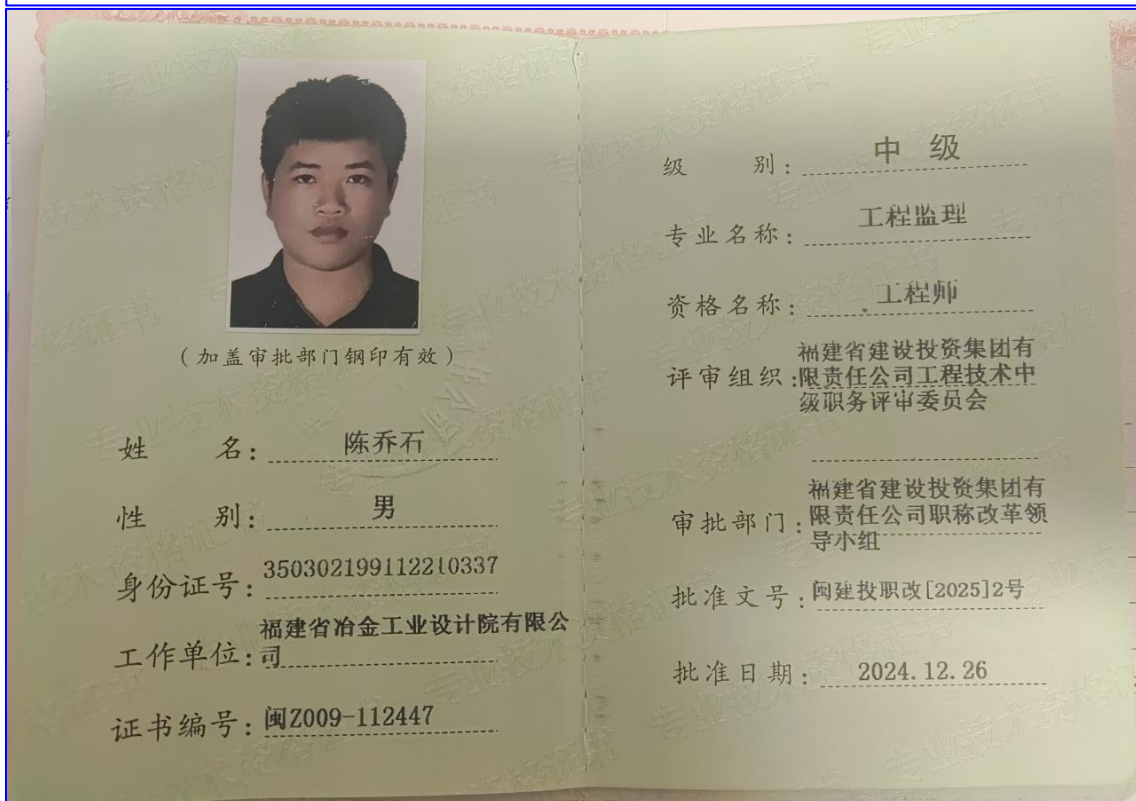 (加盖审批部门钢印有效)
姓 名: 陈乔石
性 别: 男
身份证号: 350302199112210337
工作单位: 福建省冶金工业设计院有限公
司
证书编号: 闽Z009-112447
级 别: 中 级
专业名称: 工程监理
资格名称: 工程师
评审组织: 福建省建设投资集团有
限责任公司工程技术中
级职务评审委员会
审批部门: 福建省建设投资集团有
限责任公司职称改革领
导小组
批准文号: 闽建投职改[2025]2号
批准日期: 2024.12.26
专业技术资格证书